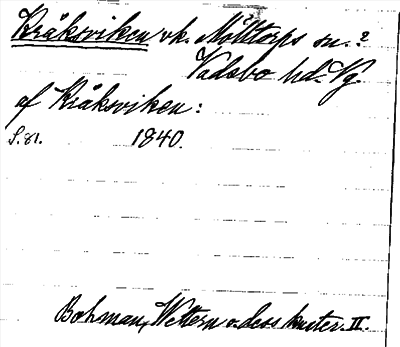 Kråksviken vk. Mölltorps sn.?
Vadsbo hd. Vg.
af Kråksviken:
S. 81. 1840.
Bohman, Wettern o. dess kuster. II.